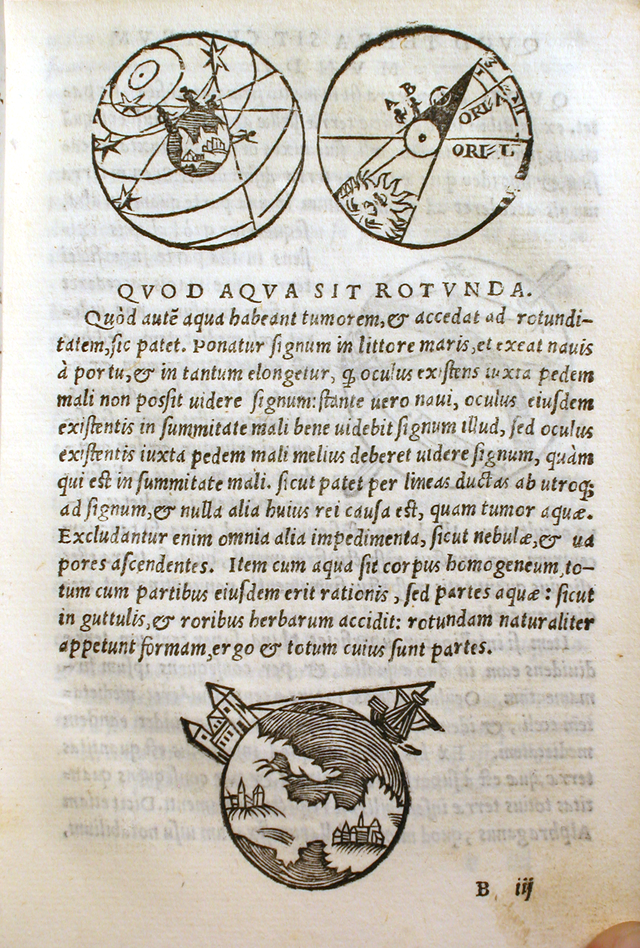 A B
ORIEA
ORIEL
QVOD AQVA SIT ROTVNDA.
Quòd autē aqua habeant tumorem, & accedat ad rotundi-
tatem, sic patet. Ponatur signum in littore maris, et exeat nauis
à portu, & in tantum elongetur, ꝙ oculus existens iuxta pedem
mali non possit uidere signum: stante uero naui, oculus eiusdem
existentis in summitate mali bene uidebit signum illud, sed oculus
existentis iuxta pedem mali melius deberet uidere signum, quàm
qui est in summitate mali. sicut patet per lineas ductas ab utroq;
ad signum, & nulla alia huius rei causa est, quam tumor aquæ.
Excludantur enim omnia alia impedimenta, sicut nebulæ, & ua
pores ascendentes. Item cum aqua sit corpus homogeneum, to-
tum cum partibus eiusdem erit rationis, sed partes aquæ: sicut
in guttulis, & roribus herbarum accidit: rotundam naturaliter
appetunt formam, ergo & totum cuius sunt partes.
B iij